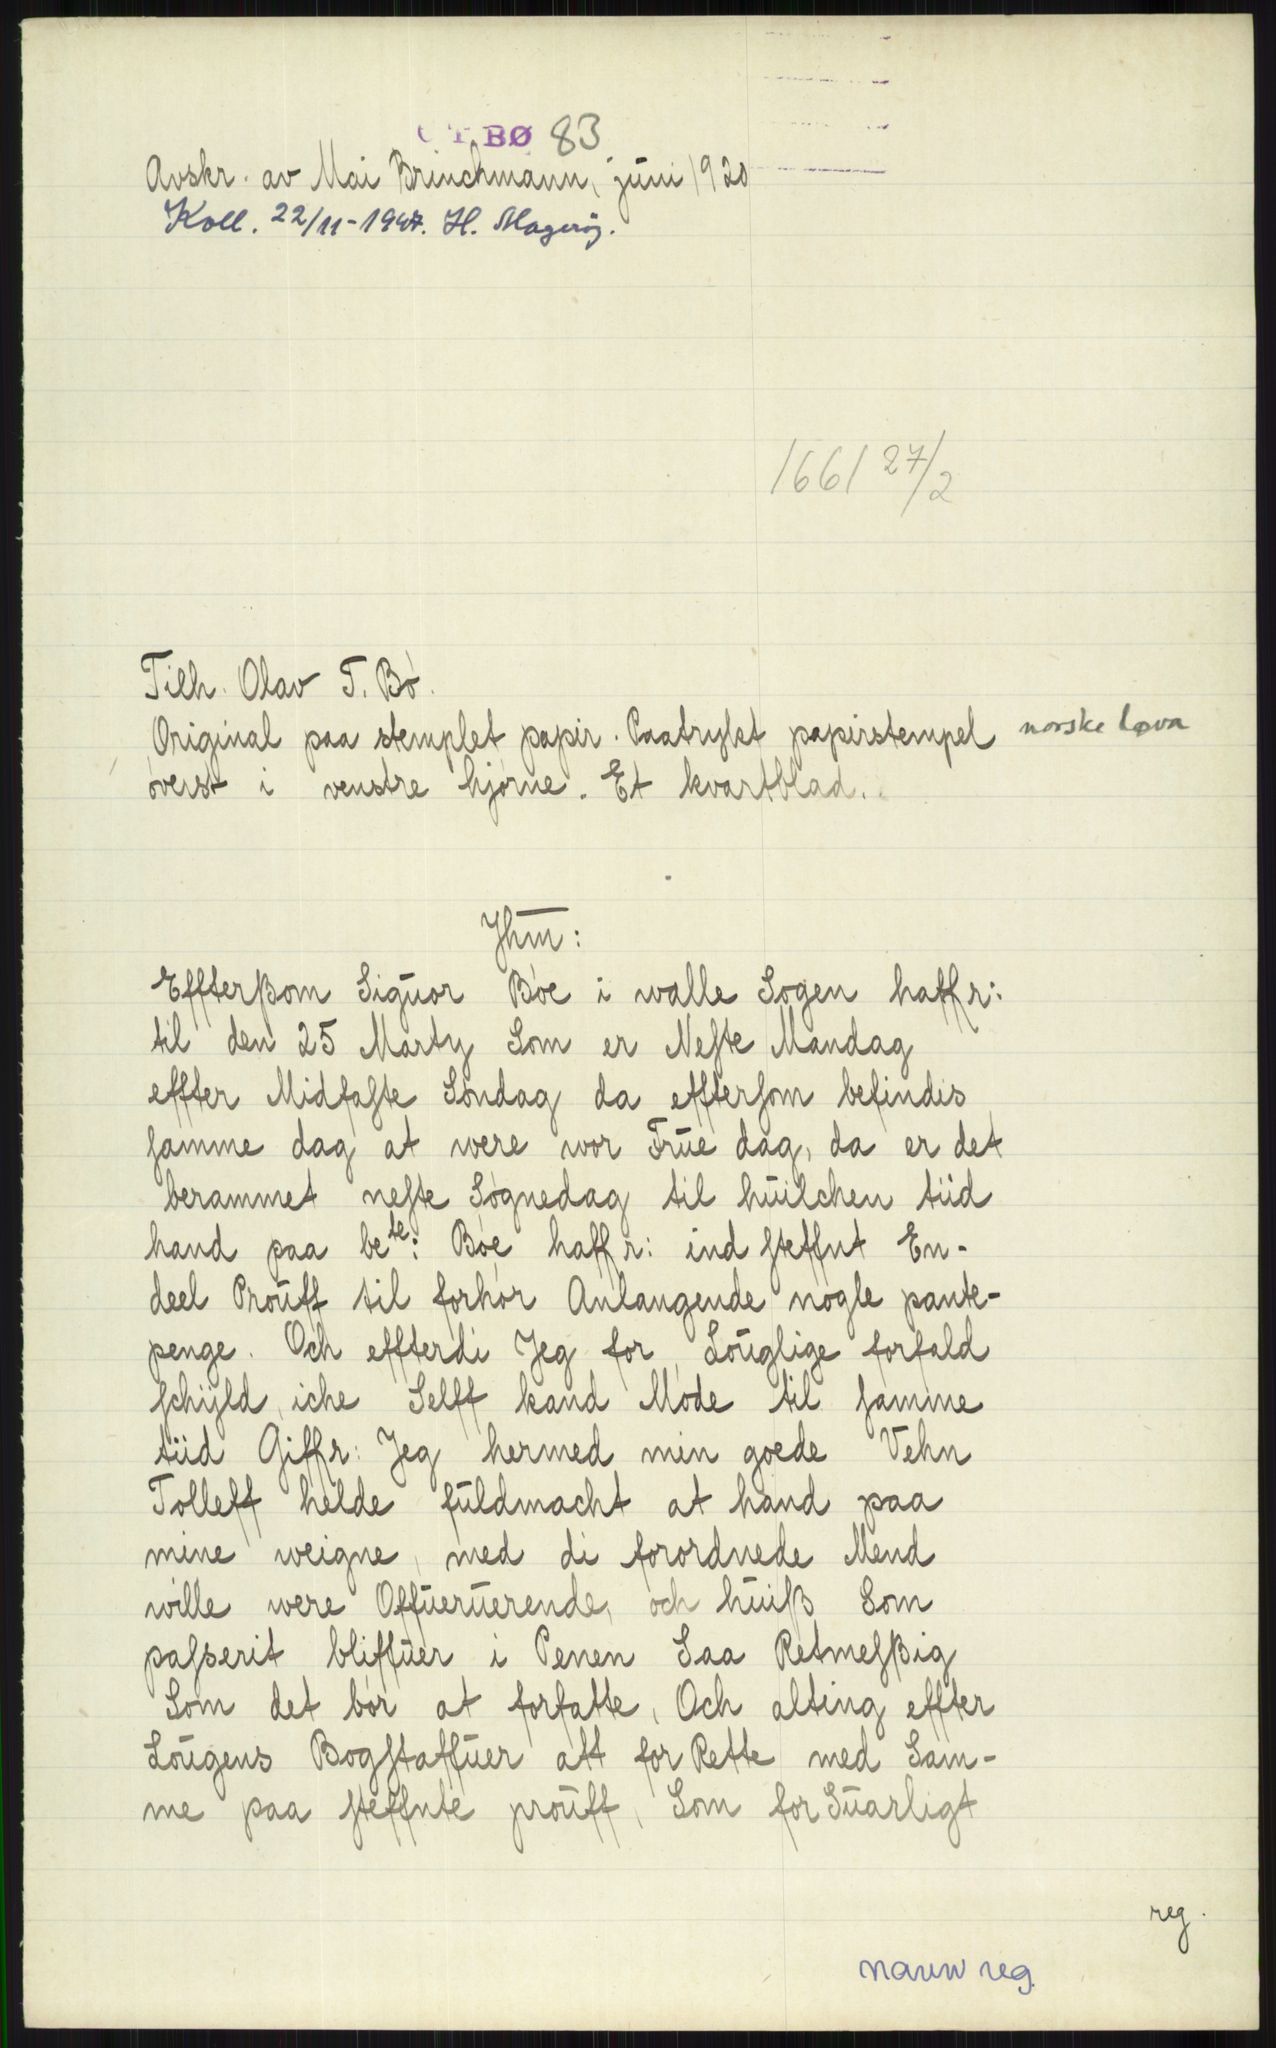 BØ 83
Avskr. av Mai Brinchmann, juni 1920
Koll. 22/11-1947. H. Magerøy.
1661 27/2
Tilh. Olav T. Bø.
Original paa stemplet papir. Paatrykt papirstempel norske løva
øverst i venstre hjørne. Et kvartblad.
Jhm:
Effterßom Siguor Bøe i walle Sogen haffr:
til den 25 Marty Som er Neste Mandag
effter Midfaste Søndag da efftersom befindis
samme dag at were wor Frue dag, da er det
berammet neste Søgnedag til huilchen tiid
hand paa bete: Bøe haffr: ind steffnt En-
deel Prouff til forhør Anlangende nogle pante-
penge. Och effterdi Jeg for Louglige forfald
schyld iche Selff kand Møde til samme
tiid Giffr: Jeg hermed min goede Vehn
Tolleff helde fuldmacht at hand paa
mine weigne, med di forordnede Mend
wille were Offueruerende, och huiß Som
passerit bliffuer i Penen Saa Retmesßig
Som det bør at forfatte, Och alting effter
Lougens Bogstaffuer att for Rette med Sam-
me paa steffnte prouff, Som for Suarligt
reg.
navn reg.